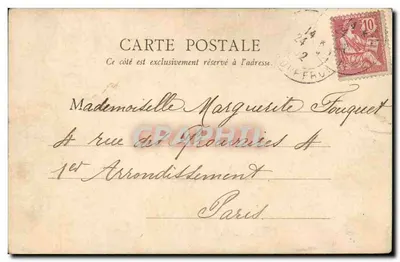 CARTE POSTALE
Ce côté est exclusivement réservé à l'adresse
14
24
2
10
Mademoiselle Marguerite Fouquet
4 rue des 4
1er Arrondissement
Paris